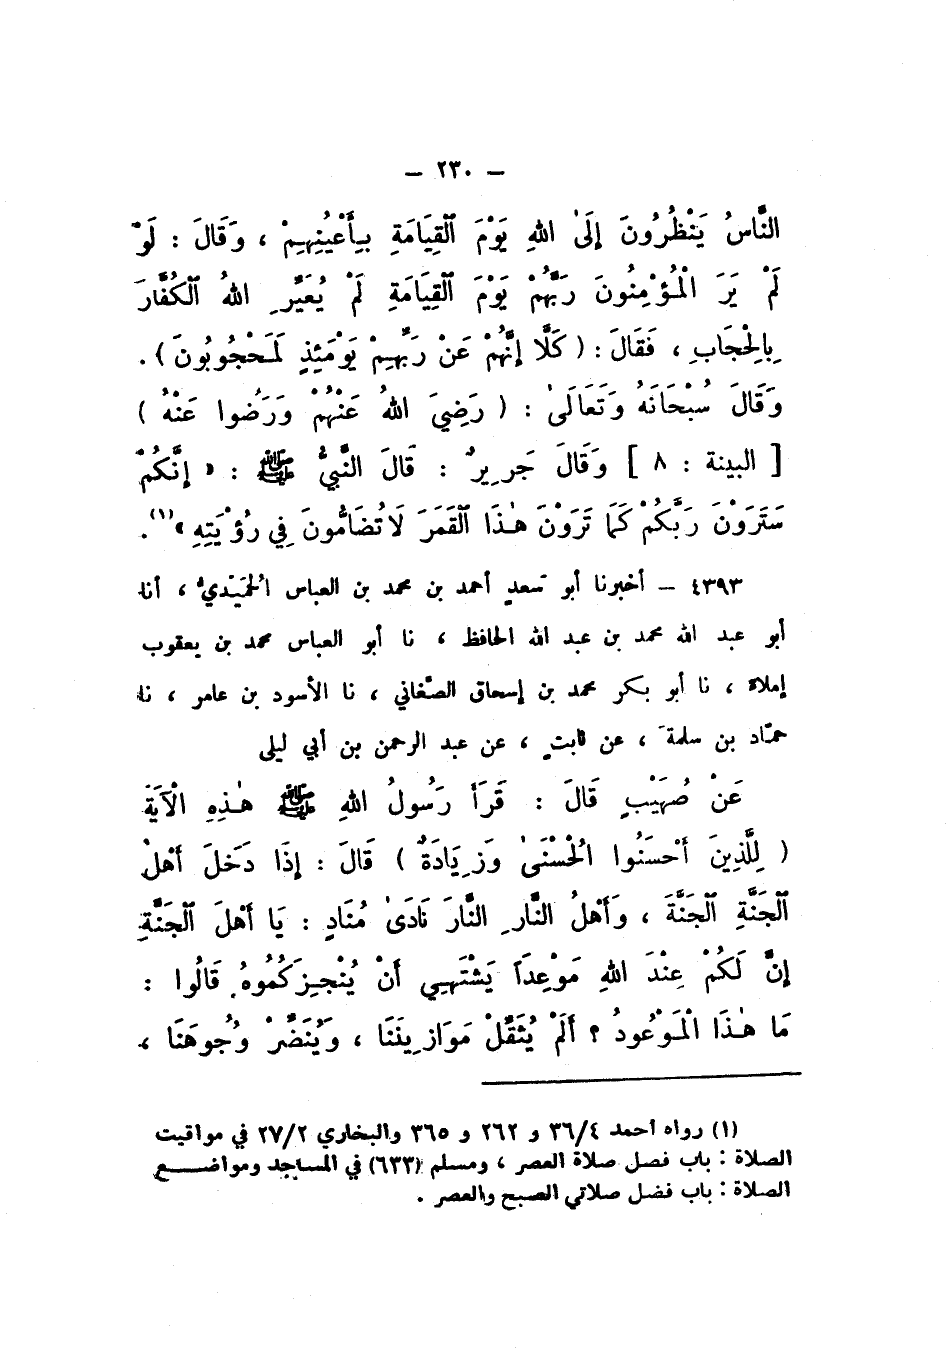 – ٢٣٠ –
النَّاسُ يَنْظُرُونَ إِلَىٰ اللهِ يَوْمَ ٱلْقِيَامَةِ بِأَعْيُنِهِمْ ، وَقَالَ : لَوْ
لَمْ يَرَ الْمُؤْمِنُونَ رَبَّهُمْ يَوْمَ ٱلْقِيَامَةِ لَمْ يُعَيِّرِ اللهُ ٱلْكُفَّارَ
بِالْحِجَابِ ، فَقَالَ : ( كَلَّا إِنَّهُمْ عَنْ رَبِّهِمْ يَوْمَئِذٍ لَمَحْجُوبُونَ ) .
وَقَالَ سُبْحَانَهُ وَتَعَالَىٰ : ( رَضِيَ اللهُ عَنْهُمْ وَرَضُوا عَنْهُ )
[ البينة : ٨ ] وَقَالَ جَرِيرٌ : قَالَ النَّبِيُّ ﷺ : « إِنَّكُمْ
سَتَرَوْنَ رَبَّكُمْ كَمَا تَرَوْنَ هٰذَا ٱلْقَمَرَ لَا تُضَامُّونَ فِي رُؤْيَتِهِ »(١) .
٤٣٩٣ – أخبرنا أبو سعدٍ أحمد بن محمد بن العباس الحُمَيْديُّ ، أنا
أبو عبد الله محمد بن عبد الله الحافظ ، نا أبو العباس محمد بن يعقوب
إملاءً ، نا أبو بكر محمد بن إسحاق الصَّغاني ، نا الأسود بن عامر ، نا
حمَّاد بن سلمةَ ، عن ثابتٍ ، عن عبد الرحمن بن أبي ليلى
عَنْ صُهَيْبٍ قَالَ : قَرَأَ رَسُولُ اللهِ ﷺ هٰذِهِ الْآيَةَ
( لِلَّذِينَ أَحْسَنُوا الْحُسْنَىٰ وَزِيَادَةٌ ) قَالَ : إِذَا دَخَلَ أَهْلُ
ٱلْجَنَّةِ ٱلْجَنَّةَ ، وَأَهْلُ النَّارِ النَّارَ نَادَىٰ مُنَادٍ : يَا أَهْلَ ٱلْجَنَّةِ
إِنَّ لَكُمْ عِنْدَ اللهِ مَوْعِدَاً يَشْتَهِي أَنْ يُنْجِزَكُمُوهُ قَالُوا :
مَا هٰذَا الْمَوْعُودُ ؟ أَلَمْ يُثَقِّلْ مَوَازِينَنَا ، وَيُنَضِّرْ وُجُوهَنَا ،
(١) رواه أحمد ٣٦/٤ و ٢٦٢ و ٣٦٥ والبخاري ٢٧/٢ في مواقيت
الصلاة : باب فصل صلاة العصر ، ومسلم (٦٣٣) في المساجد ومواضع
الصلاة : باب فضل صلاتي الصبح والعصر .